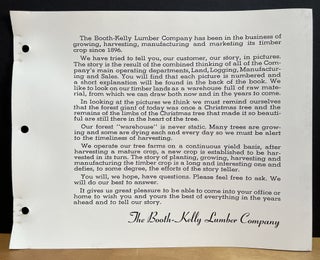 The Booth-Kelly Lumber Company has been in the business of
growing, harvesting, manufacturing and marketing its timber
crop since 1896.
We have tried to tell you, our customer, our story, in pictures.
The story is the result of the combined thinking of all of the Com-
pany's main operating departments, Land, Logging, Manufactur-
ing and Sales. You will find that each picture is numbered and
a short explanation will be found in the back of the book. We
like to look on our timber lands as a warehouse full of raw mate-
rial, from which we can draw both now and in the years to come.
In looking at the pictures we think we must remind ourselves
that the forest giant of today was once a Christmas tree and the
remains of the limbs of the Christmas tree that made it so beauti-
ful are still there in the heart of the tree.
Our forest "warehouse" is never static. Many trees are grow-
ing and some are dying each and every day so we must be alert
to the timeliness of harvesting.
We operate our tree farms on a continuous yield basis, after
harvesting a mature crop, a new crop is established to be har-
vested in its turn. The story of planting, growing, harvesting and
manufacturing the timber crop is a long and interesting one and
defies, to some degree, the efforts of the story teller.
You will, we hope, have questions. Please feel free to ask. We
will do our best to answer.
It gives us great pleasure to be able to come into your office or
home to wish you and yours the best of everything in the years
ahead and to tell our story.
The Booth-Kelly Lumber Company